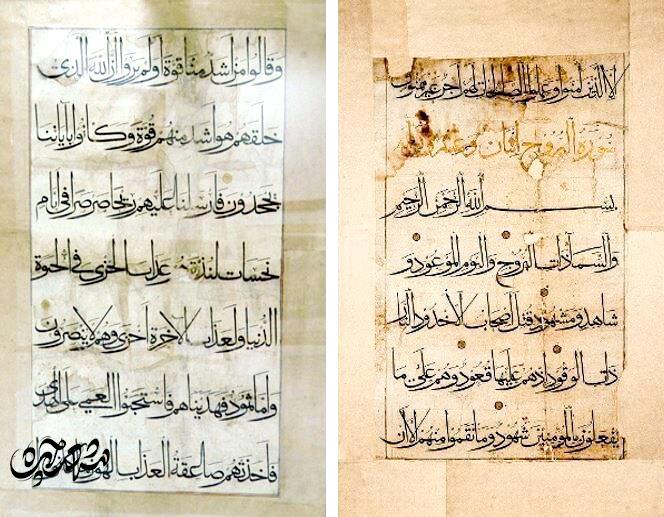 الا الذين امنوا وعملوا الصالحات لهم اجر غير ممنون
سورة البروج اثنان وعشرون
بسم الله الرحمن الرحيم
والسماء ذات البروج واليوم الموعود و
شاهد ومشهود قتل اصحاب الاخدود النار
ذات الوقود اذ هم عليها قعود وهم على ما
يفعلون بالمؤمنين شهود وما نقموا منهم الا ان
وقالوا من اشد منا قوة اولم يروا ان الله الذي
خلقهم هو اشد منهم قوة وكانوا باياتنا
يجحدون فارسلنا عليهم ريحا صرصرا في ايام
نحسات لنذيقهم عذاب الخزي في الحيوة
الدنيا ولعذاب الاخرة اخزى وهم لا ينصرون
واما ثمود فهديناهم فاستحبوا العمى على الهدى
فاخذتهم صاعقة العذاب الهون